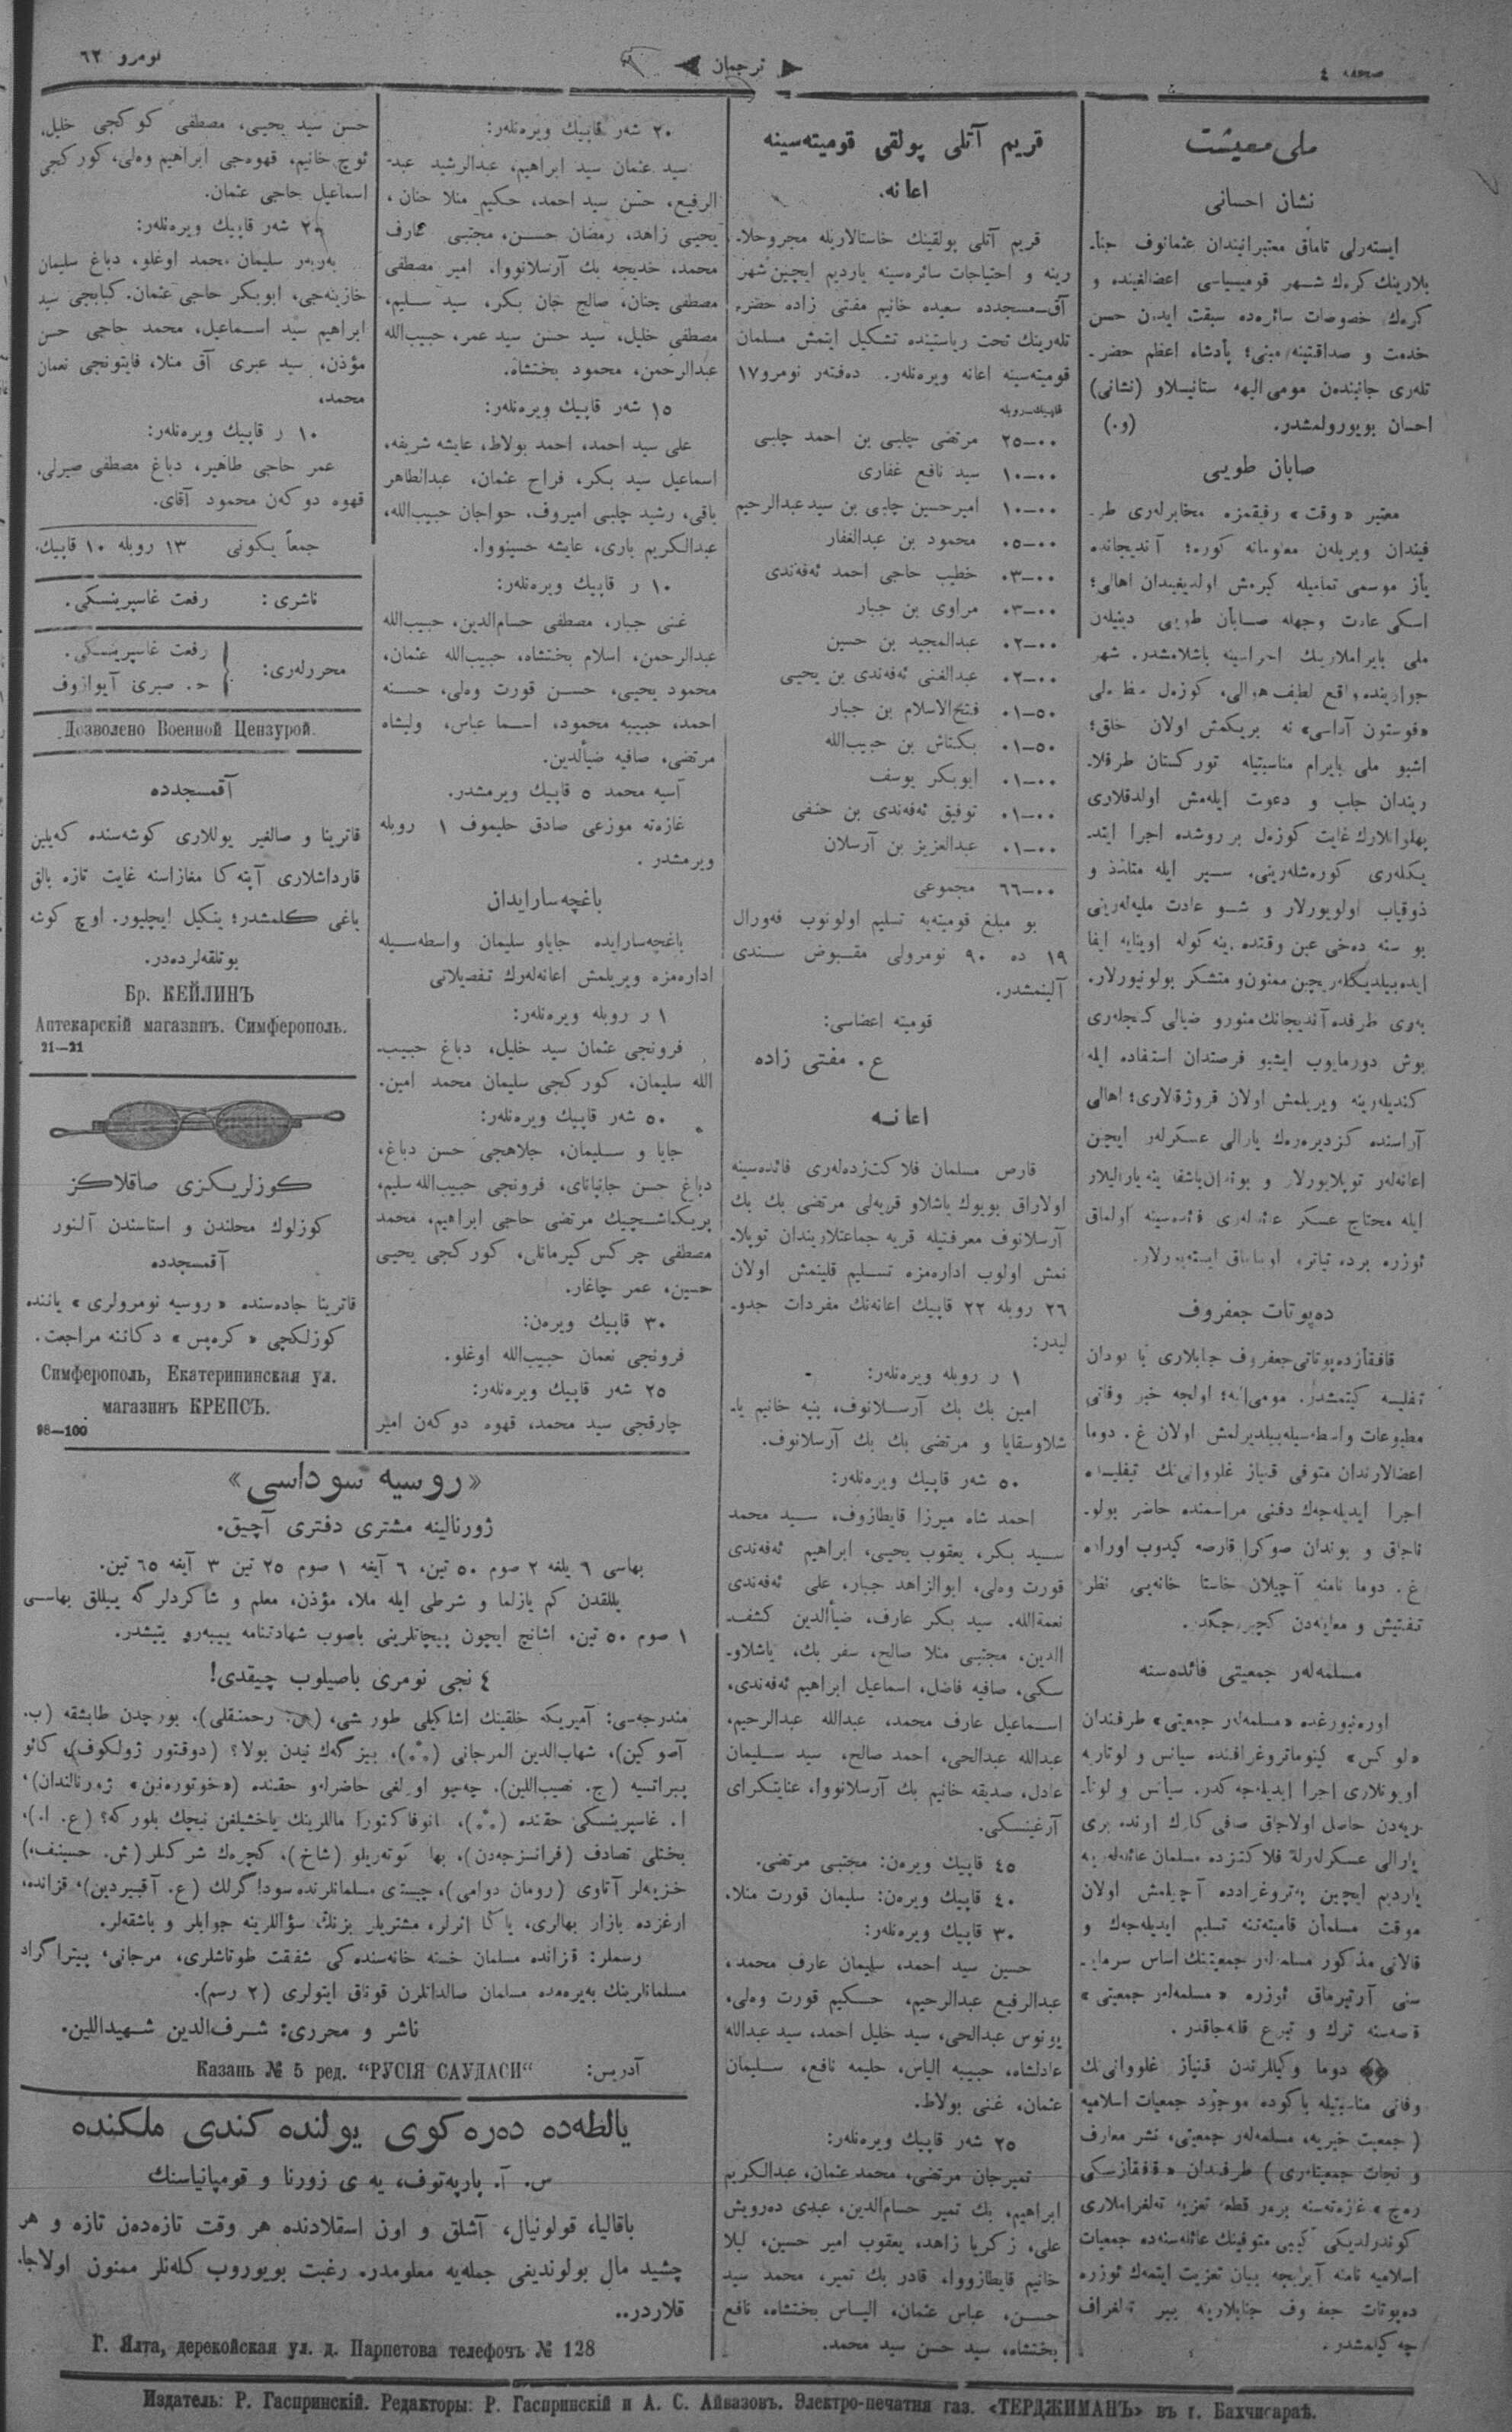 صحیفه ٤
ترجمان
نومرو ٦٢
ملی معیشت
نشان احسانی
ایسته‌رلی تاماق معتبرانیندان عثمانوف جنا-
بلارینك كرك شهر قومیسیاسی اعضالغینده و
كرەك خصوصات سائره‌ده سبقت ایدن حسن
خدمت و صداقتینه مبنی؛ پادشاه اعظم حضر-
تله‌ری جانبندەن مومی الیهه ستانیسلاو (نشانی)
احسان بویورولمشدر. (و.)
صابان طویی
معتبر «وقت» رفیقمزه مخابرلەری طر-
فیندان ویریلەن معلوماته كوره؛ آندیجانده
یاز موسمی تمامیله كیرمش اولدیغیندان اهالی؛
اسكی عادت وجهله صابان طویی دینیلەن
ملی بایراملارینك اجراسینه باشلامشدر. شهر
جوارینده واقع لطیف هوالی، كوزەل منظره‌لی
«فوستون آداسی» نه بریكمش اولان خلق؛
اشبو ملی بایرام مناسبتیله توركستان طرفلا-
ریندان جلب و دعوت ایلەمش اولدقلاری
پهلوانلارك غایت كوزەل بر روشده اجرا ایتد-
یكلەری كوره‌شلەرینی، سیر ایله متلذذ و
ذوقیاب اولویورلار و شو عادت ملیه‌لەرینی
بو سنه ده‌خی عین وقتده ینه كوله اوینایه ایفا
ایده‌بیلدیكلەریچین ممنون و متشكر بولونیورلار.
بەری طرفده آندیجانك منورو ضیالی كنجلەری
بوش دورمایوب ایشبو فرصتدان استفاده ایله
كندیلەرینه ویریلمش اولان قروژقالاری؛ اهالی
آراسنده كزدیره‌رەك یارالی عسكرلەر ایچین
اعانه‌لەر توپلایورلار و بوندان باشقا ینه یارالیلار
ایله محتاج عسكر عائله‌لەری فائده‌سینه اولماق
ئوزره برده تیاترو اویناماق ایسته‌یورلار.
ده‌پوتات جعفروف
قافقازده‌پوتاتی جعفروف جنابلاری با بودان
تفلیسه كیتمشدر. مومی‌الیه؛ اولجه خبر وفاتی
مطبوعات واسطه‌سیله‌بیلدیرلمش اولان غ. دوما
اعضالارندان متوفی قنیاز غلووانی‌نك تیفلیسده
اجرا ایدیله‌جەك دفنی مراسمنده حاضر بولو-
ناجاق و بوندان صوكرا قارصه كیدوب اوراده
غ. دوما نامنه آچیلان خاستا خانه‌یی نظر
تفتیش و معاینه‌دن كچیرەجكدر.
مسلمه‌لەر جمعیتی فائده‌سنه
اوره‌نبورغده «مسلمه‌لەر جمعیتی» طرفندان
«لوكس» كینوماتروغرافنده سیانس و لوتاریه
اویونلاری اجرا ایدیله‌جەكدر. سیانس و لوتا-
ریه‌دن حاصل اولاجاق صافی كارك اونده بری
یارالی عسكرلەرله فلاكتزده مسلمان عائله‌لەرینه
یاردیم ایچین پەتروغرادده آچیلمش اولان
موقت مسلمان قامیته‌تنه تسلیم ایدیله‌جەك و
قالانی مذكور مسلمه‌لەر جمعیتینك اساس سرمایه-
سنی آرتیرماق ئوزره «مسلمه‌لەر جمعیتی»
قصه‌سنه ترك و تبرع قلنه‌جاقدر.
دوما وكیللرندن قنیاز غلووانی‌نك
وفاتی مناسبتیله باكوده موجود جمعیات اسلامیه
(جمعیت خیریه، مسلمه‌لەر جمعیتی، نشر معارف
و نجات جمعیتلەری) طرفندان «قافقازسكی
رەچ» غازه‌ته‌سنه برەر قطعه تعزیه تەلغراملاری
كوندرلدیكی كیبی متوفینك عائله‌سنه‌ده جمعیات
اسلامیه نامنه آیرلیجه بیان تعزیت ایتمەك ئوزره
ده‌پوتات جعفروف جنابلارینه بیر تەلغراف
چه‌كیلمشدر.
قریم آتلی پولقی قومیته‌سینه
اعانه.
قریم آتلی پولقینك خاستالاریله مجروحلا-
رینه و احتیاجات سائره‌سینه یاردیم ایچین شهر
آق-مسجدده سعیده خانیم مفتی زاده حضر-
تله‌رینك تحت ریاستینده تشكیل ایتمش مسلمان
قومیته‌سینه اعانه ویره‌نلەر. ده‌فتەر نومرو١٧
قاپیك-روبله
٠٠—٢٥ مرتضی چلبی بن احمد چلبی
٠٠—١٠ سید نافع غفاری
٠٠—١٠ امیرحسین چلبی بن سید عبدالرحیم
٠٠—٠٥ محمود بن عبدالغفار
٠٠—٠٣ خطیب حاجی احمد ئەفەندی
٠٠—٠٣ مراوی بن جبار
٠٠—٠٢ عبدالمجید بن حسین
٠٠—٠٢ عبدالغنی ئەفەندی بن یحیی
٥٠—٠١ فتح‌الاسلام بن جبار
٥٠—٠١ بكتاش بن حبیب‌الله
٠٠—٠١ ابوبكر یوسف
٠٠—٠١ توفیق ئەفەندی بن حنفی
٠٠—٠١ عبدالعزیز بن آرسلان
٠٠—٦٦ مجموعی
بو مبلغ قومیته‌یه تسلیم اولونوب فەورال
١٩ ده ٩٠ نومرولی مقبوض سندی
آلینمشدر.
قومیته اعضاسی:
ع. مفتی زاده
اعانه
قارص مسلمان فلاكت‌زده‌لەری فائده‌سینه
اولاراق بویوك یاشلاو قریه‌لی مرتضی بك بك
آرسلانوف معرفتیله قریه جماعتلاریندان توپلا-
نمش اولوب اداره‌مزه تسلیم قلینمش اولان
٢٦ روبله ٢٢ قاپیك اعانه‌نك مفردات جدو-
لیدر:
١ ر روبله ویره‌نلەر:
امین بك بك آرسلانوف، بنیه خانیم یا-
شلاوسقایا و مرتضی بك بك آرسلانوف.
٥٠ شەر قاپیك ویره‌نلەر:
احمد شاه میرزا قایطازوف، سید محمد
سید بكر، یعقوب یحیی، ابراهیم ئەفەندی
قورت وەلی، ابوالزاهد جبار، علی ئەفەندی
نعمةالله. سید بكر عارف، ضیأالدین كشف-
الدین، مجتبی منلا صالح، سفر بك، یاشلاو-
سكی، صافیه فاضل، اسماعیل ابراهیم ئەفەندی،
اسماعیل عارف محمد، عبدالله عبدالرحیم،
عبدالله عبدالحی، احمد صالح، سید سلیمان
عادل، صدیقه خانیم بك آرسلانووا، عنایتكرای
آرغینسكی.
٤٥ قاپیك ویرەن: مجتبی مرتضی.
٤٠ قاپیك ویرەن: سلیمان قورت منلا.
٣٠ قاپیك ویره‌نلەر:
حسین سید احمد، سلیمان عارف محمد،
عبدالرفیع عبدالرحیم، حكیم قورت وەلی،
یونوس عبدالحی، سید خلیل احمد، سید عبدالله
عادلشاه، حبیبه الیاس، حلیمه نافع، سلیمان
عثمان، غنی بولاط.
٢٥ شەر قاپیك ویره‌نلەر:
تمیرجان مرتضی، محمد عثمان، عبدالكریم
ابراهیم، بك تمیر حسام‌الدین، عبدی دەرویش
علی، زكریا زاهد، یعقوب امیر حسین، لیلا
خانیم قایطازووا، قادر بك تمیر، محمد سید
حسن، عباس عثمان، الیاس بختشاه، نافع
بختشاه، سید حسن سید محمد.
٢٠ شەر قاپیك ویره‌نلەر:
سید عثمان سید ابراهیم، عبدالرشید عبد-
الرفیع، حسن سید احمد، حكیم منلا حنان،
یحیی زاهد، رمضان حسن، مجتبی عارف
محمد، خدیجه بك آرسلانووا، امیر مصطفی
مصطفی چنان، صالح جان بكر، سید سلیم،
مصطفی خلیل، سید حسن سید عمر، حبیب‌الله
عبدالرحمن، محمود بختشاه.
١٥ شەر قاپیك ویره‌نلەر:
علی سید احمد، احمد بولاط، عایشه شریفه،
اسماعیل سید بكر، فراح عثمان، عبدالطاهر
باقی، رشید چلبی امیروف، حواجان حبیب‌الله،
عبدالكریم باری، عایشه حسینووا.
١٠ ر قاپیك ویره‌نلەر:
غنی جبار، مصطفی حسام‌الدین، حبیب‌الله
عبدالرحمن، اسلام بختشاه، حبیب‌الله عثمان،
محمود یحیی، حسن قورت وەلی، حسنه
احمد، حبیبه محمود، اسما عباس، ولیشاه
مرتضی، صافیه ضیأالدین.
آسیه محمد ٥ قاپیك ویرمشدر.
غازه‌ته موزعی صادق حلیموف ١ روبله
ویرمشدر.
باغچه‌سارایدان
باغچه‌سارایده جایاو سلیمان واسطه‌سیله
اداره‌مزه ویریلمش اعانه‌لەرك تفصیلاتی
١ ر روبله ویره‌نلەر:
فرونجی عثمان سید خلیل، دباغ حبیب-
الله سلیمان، كوركجی سلیمان محمد امین.
٥٠ شەر قاپیك ویره‌نلەر:
جایا و سلیمان، جلاهجی حسن دباغ،
دباغ حسن جانبانای، فرونجی حبیب‌الله سلیم،
پریكماشچیك مرتضی حاجی ابراهیم، محمد
مصطفی چركس كیرمانلی، كوركجی یحیی
حسین، عمر چاغار.
٣٠ قاپیك ویرەن:
فرونجی نعمان حبیب‌الله اوغلو.
٢٥ شەر قاپیك ویره‌نلەر:
چارقجی سید محمد، قهوه دوكەن امیر
حسن سید یحیی، مصطفی كوكجی خلیل،
ئوچ خانیم، قهوه‌جی ابراهیم وەلی، كوركجی
اسماعیل حاجی عثمان.
٢٠ شەر قاپیك ویره‌نلەر:
بەربەر سلیمان محمد اوغلو، دباغ سلیمان
خازینه‌جی، ابوبكر حاجی عثمان، كبابجی سید
ابراهیم سید اسماعیل، محمد حاجی حسن
مؤذن، سید عبری آق منلا، فایتونجی نعمان
محمد،
١٠ ر قاپیك ویره‌نلەر:
عمر حاجی طاهیر، دباغ مصطفی صیرلی،
قهوه دوكەن محمود آقای.
جمعاً یكونی ١٣ روبله ١٠ قاپیك.
ناشری: رفعت غاسپرینسكی.
محررلەری: رفعت غاسپرینسكی.
ح. صبری آیوازوف
Дозволено Военной Цензурой.
آقمسجدده
قاترینا و صالغیر یوللاری كوشه‌سنده كەیلین
قارداشلاری آپته‌كا مغازاسنه غایت تازه بالق
یاغی كلمشدر؛ ینكیل ایچلیور. اوچ كوشه
بوتلقه‌لرده‌در.
Бр. КЕЙЛИНЪ
Аптекарскій магазинъ. Симферополь.
21—21
كوزلریكزی صاقلاكز
كوزلوك محلندن و استاسندن آلنور
آقمسجدده
قاترینا جاده‌سنده «روسیه نومرولری» یاننده
كوزلكچی «كرەپس» دكاننه مراجعت.
Симферополь, Екатерининская ул.
магазинъ КРЕПСЪ.
98—100
«روسیه سوداسی»
ژورنالینه مشتری دفتری آچیق.
بهاسی ٦ یلغه ٢ صوم ٥٠ تین، ٦ آیغه ١ صوم ٢٥ تین ٣ آیغه ٦٥ تین.
یللقدن كم یازلما و شرطی ایله ملا، مؤذن، معلم و شاكردلرگه ییللق بهاسی
١ صوم ٥٠ تین، اشانچ ایچون پیچاتلرینی باصوب شهادتنامه ییبه‌رو یتیشدر.
٤ نجی نومری باصیلوب چیقدی!
مندرجه‌سی: آمیریكه خلقینك اشلكیلی طورشی، (ص. رحمنقلی)، بورچدن طابشقه (ب.
آصوكین)، شهاب‌الدین المرجانی (٭٭٭)، بیزگەك نیدن بولا؟ (دوقتور ژولكوف)، كانو
پیراتسیه (ج. نصیب‌اللین). چه‌چو اورلغی حاضرلەو حقنده («خوتوره‌نین» ژورنالندان)،
ا. غاسپرینسكی حقنده (٭٭٭)، مانوفاكتورا ماللرینك یاخشیلغن نیچك بلورگه؟ (ع. ا.)،
بختلی تصادف (فرانسزجه‌دن)، بها توتەریلو (شاخ)، كچرەك شركتلر (ش. حسینف)،
خزینه‌لر آتاوی (رومان دوامی)، چیستای مسلمانلرنده سودا گرلك (ع. آقبیردین)، قزانده،
ارغزده بازار بهالری، یاكا اثرلر، مشتریلر بزنك سؤاللرینه جوابلر و باشقه‌لر.
رسملر: قزانده مسلمان خسته خانه‌سنده‌كی شفقت طوتاشلری، مرجانی، پیتراگراد
مسلمانلرینك به‌یره‌مده مسلمان صالداتلرن قوناق ایتولری (٢ رسم).
ناشر و محرری: شرف‌الدین شهیداللین.
آدریس: Казань № 5 ред. “РУСІЯ САУДАСИ“
یالطه‌ده دەرەكوی یولنده كندی ملكنده
س. آ. پارپەتوف، یه ی زورنا و قومپانیاسنك
باقالیا، قولونیال، آشلق و اون اسقلادنده هر وقت تازه‌دەن تازه و هر
چشید مال بولوندیغی جمله‌یه معلومدر. رغبت بویوروب كلەنلر ممنون اولاجا-
قلاردر..
Г. Ялта, дерекойская ул. д. Парпетова телефонъ № 128
Издатель: Р. Гаспринскій. Редакторы: Р. Гаспринскій и А. С. Айвазовъ. Электро-печатня газ. «ТЕРДЖИМАНЪ» въ г. Бахчисараѣ.